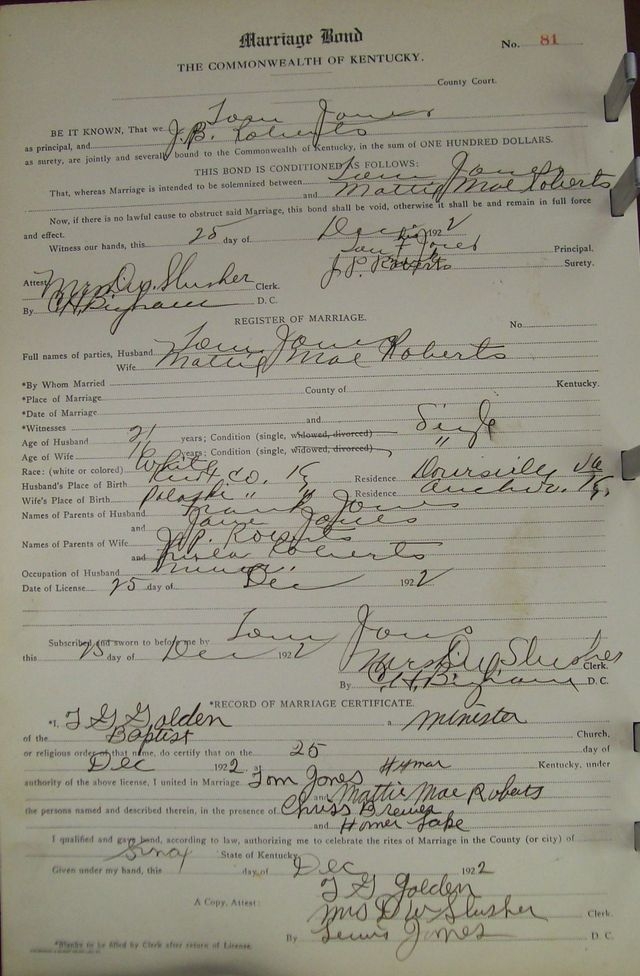 Marriage Bond
No. 81
THE COMMONWEALTH OF KENTUCKY.
County Court.
BE IT KNOWN, That we Tom Jones
as principal, and J.B. Roberts
as surety, are jointly and severally bound to the Commonwealth of Kentucky, in the sum of ONE HUNDRED DOLLARS.
THIS BOND IS CONDITIONED AS FOLLOWS:
That, whereas Marriage is intended to be solemnized between Tom Jones
and Mattie Mae Roberts
Now, if there is no lawful cause to obstruct said Marriage, this bond shall be void, otherwise it shall be and remain in full force
and effect.
Witness our hands, this 25 day of Dec 1922
Tom Jones Principal.
Attest Mrs D.W. Slusher Clerk. J.P. Roberts Surety.
By C.H. Bingham D. C.
REGISTER OF MARRIAGE.
No.
Full names of parties, Husband Tom Jones
Wife Mattie Mae Roberts
*By Whom Married
*Place of Marriage County of Kentucky.
*Date of Marriage
*Witnesses and
Age of Husband 21 years; Condition (single, widowed, divorced) Single
Age of Wife years; Condition (single, widowed, divorced) "
Race: (white or colored) White
Husband's Place of Birth co. Ky Residence Va
Wife's Place of Birth Polaski " " Residence Ky.
Names of Parents of Husband Frank Jones
and Jane Jones
Names of Parents of Wife J.P. Roberts
and Roberts
Occupation of Husband miner
Date of License 25 day of Dec 1922
Subscribed and sworn to before me by Tom Jones
this 25 day of Dec 1922 Mrs D.W. Slusher Clerk.
By C.H. Bingham D. C.
*RECORD OF MARRIAGE CERTIFICATE.
*I, T G Golden a minister
of the Baptist Church,
or religious order of that name, do certify that on the 25 day of
Dec 1922, at Kentucky, under
authority of the above license, I united in Marriage Tom Jones
and Mattie Mae Roberts
the persons named and described therein, in the presence of Chriss Brewer
and Homer
I qualified and gave bond, according to law, authorizing me to celebrate the rites of Marriage in the County (or city) of
State of Kentucky
Given under my hand, this day of Dec 1922
T G Golden
A Copy, Attest: Mrs D W Slusher Clerk.
By Lewis Jones D. C.
*Blanks to be filled by Clerk after return of License.